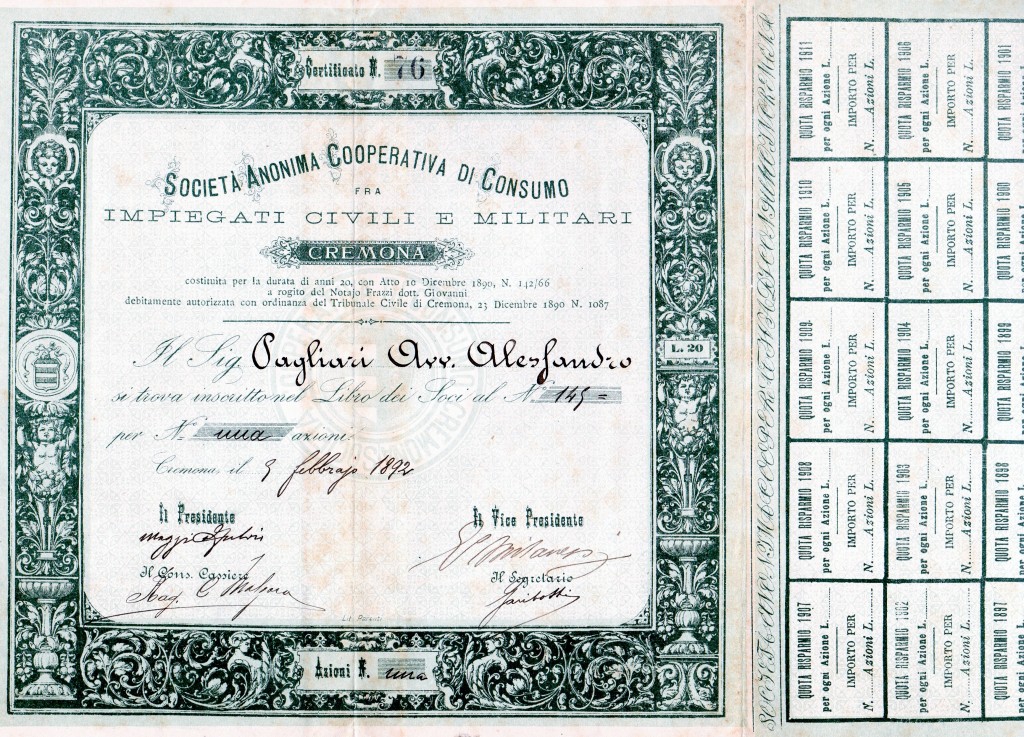 Certificato N. 76
SOCIETÀ ANONIMA COOPERATIVA DI CONSUMO
FRA
IMPIEGATI CIVILI E MILITARI
CREMONA
costituita per la durata di anni 20, con Atto 10 Dicembre 1890, N. 142/66
a rogito del Notajo Frazzi dott. Giovanni
debitamente autorizzata con ordinanza del Tribunale Civile di Cremona, 23 Dicembre 1890 N. 1087
Il Sig. Pagliari Avv. Alessandro
L. 20
si trova inscritto nel Libro dei Soci al N. 145 =
per N. una azioni.
Cremona, il 9 febbrajo 1892
Il Presidente
Il Vice Presidente
Il Cons. Cassiere
Rag. C
Il Segretario
Garibotti
Lit.
Azioni N. una
QUOTA RISPARMIO 1911
per ogni Azione L.
IMPORTO PER
N. Azioni L.
QUOTA RISPARMIO 1906
per ogni Azione L.
IMPORTO PER
N. Azioni L.
QUOTA RISPARMIO 1901
QUOTA RISPARMIO 1910
per ogni Azione L.
IMPORTO PER
N. Azioni L.
QUOTA RISPARMIO 1905
per ogni Azione L.
IMPORTO PER
N. Azioni L.
QUOTA RISPARMIO 1900
QUOTA RISPARMIO 1909
per ogni Azione L.
IMPORTO PER
N. Azioni L.
QUOTA RISPARMIO 1904
per ogni Azione L.
IMPORTO PER
N. Azioni L.
QUOTA RISPARMIO 1899
QUOTA RISPARMIO 1908
per ogni Azione L.
IMPORTO PER
N. Azioni L.
QUOTA RISPARMIO 1903
per ogni Azione L.
IMPORTO PER
N. Azioni L.
QUOTA RISPARMIO 1898
QUOTA RISPARMIO 1907
per ogni Azione L.
IMPORTO PER
N. Azioni L.
QUOTA RISPARMIO 1902
per ogni Azione L.
IMPORTO PER
N. Azioni L.
QUOTA RISPARMIO 1897